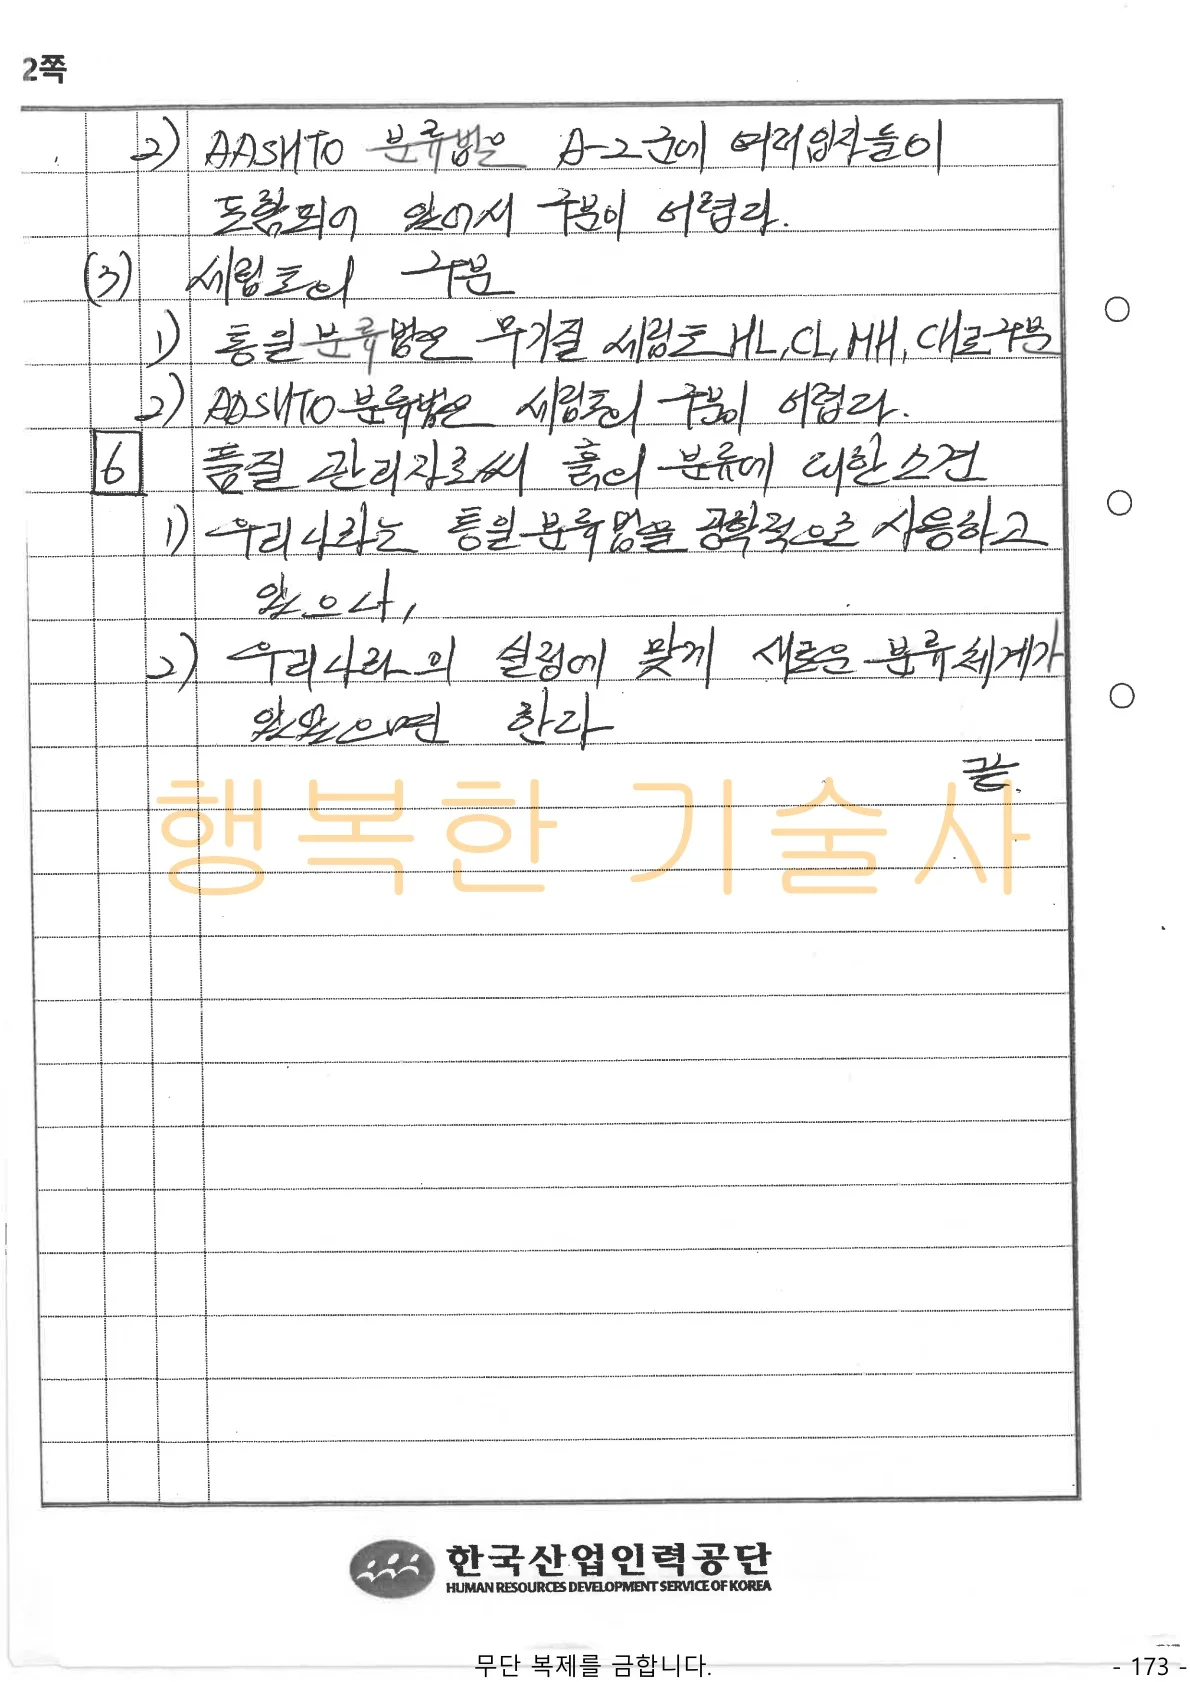 2쪽
2) AASHTO 분류법은 A-2군에 여러입자들이
포함되어 있어서 구분이 어렵다.
(3) 세립토의 구분
1) 통일분류법은 무기질 세립토 ML, CL, MH, CH로구분
2) AASHTO분류법은 세립토의 구분이 어렵다.
6 품질 관리자로써 흙의 분류에 대한소견
1) 우리나라는 통일분류법을 공학적으로 사용하고
있으나,
2) 우리나라의 실정에 맞게 새로운 분류체계가
있었으면 한다
끝.
행복한 기술사
한국산업인력공단
HUMAN RESOURCES DEVELOPMENT SERVICE OF KOREA
무단 복제를 금합니다.
- 173 -